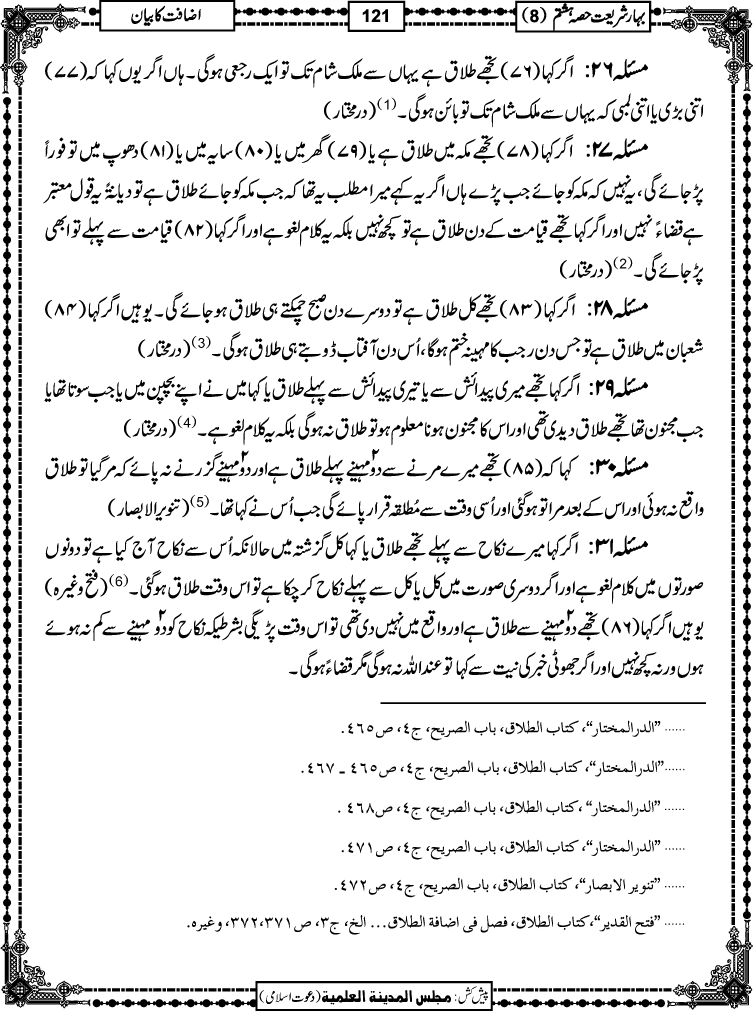 بہارشریعت حصہ ہشتم (8)
121
اضافت کا بیان
مسئلہ ۲۶: اگر کہا (۷۶) تجھے طلاق ہے یہاں سے ملک شام تک تو ایک رجعی ہوگی۔ ہاں اگر یوں کہا کہ (۷۷)
اتنی بڑی یا اتنی لمبی کہ یہاں سے ملک شام تک تو بائن ہوگی۔(1) (درمختار)
مسئلہ ۲۷: اگر کہا (۷۸) تجھے مکہ میں طلاق ہے یا (۷۹) گھر میں یا (۸۰) سایہ میں یا (۸۱) دھوپ میں تو فوراً
پڑ جائے گی، یہ نہیں کہ مکہ کو جائے جب پڑے ہاں اگر یہ کہے میرا مطلب یہ تھا کہ جب مکہ کو جائے طلاق ہے تو دیانۃً یہ قول معتبر
ہے قضاءً نہیں اور اگر کہا تجھے قیامت کے دن طلاق ہے تو کچھ نہیں بلکہ یہ کلام لغو ہے اور اگر کہا (۸۲) قیامت سے پہلے تو ابھی
پڑ جائے گی۔(2) (درمختار)
مسئلہ ۲۸: اگر کہا (۸۳) تجھے کل طلاق ہے تو دوسرے دن صبح چمکتے ہی طلاق ہو جائے گی۔ یوہیں اگر کہا (۸۴)
شعبان میں طلاق ہے تو جس دن رجب کا مہینہ ختم ہوگا، اُس دن آفتاب ڈوبتے ہی طلاق ہوگی۔(3) (درمختار)
مسئلہ ۲۹: اگر کہا تجھے میری پیدائش سے یا تیری پیدائش سے پہلے طلاق یا کہا میں نے اپنے بچپن میں یا جب سوتا تھا یا
جب مجنون تھا تجھے طلاق دیدی تھی اور اس کا مجنون ہونا معلوم ہو تو طلاق نہ ہوگی بلکہ یہ کلام لغو ہے۔(4) (درمختار)
مسئلہ ۳۰: کہا کہ (۸۵) تجھے میرے مرنے سے دو۲ مہینے پہلے طلاق ہے اور دو۲ مہینے گزرنے نہ پائے کہ مر گیا تو طلاق
واقع نہ ہوئی اور اس کے بعد مرا تو ہوگئی اور اُسی وقت سے مُطلقہ قرار پائے گی جب اُس نے کہا تھا۔(5) (تنویر الابصار)
مسئلہ ۳۱: اگر کہا میرے نکاح سے پہلے تجھے طلاق یا کہا کل گزشتہ میں حالانکہ اُس سے نکاح آج کیا ہے تو دونوں
صورتوں میں کلام لغو ہے اور اگر دوسری صورت میں کل یا کل سے پہلے نکاح کر چکا ہے تو اس وقت طلاق ہوگئی۔(6) (فتح وغیرہ)
یوہیں اگر کہا (۸۶) تجھے دو۲ مہینے سے طلاق ہے اور واقع میں نہیں دی تھی تو اس وقت پڑیگی بشرطیکہ نکاح کو دو۲ مہینے سے کم نہ ہوئے
ہوں ورنہ کچھ نہیں اور اگر جھوٹی خبر کی نیت سے کہا تو عنداللہ نہ ہوگی مگر قضاءً ہوگی۔
...... ”الدرالمختار“، كتاب الطلاق، باب الصريح، ج٤، ص٤٦٥.
......”الدرالمختار“، كتاب الطلاق، باب الصريح، ج٤، ص٤٦٥ ـ ٤٦٧.
...... ”الدرالمختار“ ،كتاب الطلاق، باب الصريح، ج٤، ص٤٦٨ .
...... ”الدرالمختار“، كتاب الطلاق، باب الصريح، ج٤، ص٤٧١.
...... ”تنوير الابصار“، كتاب الطلاق، باب الصريح، ج٤، ص٤٧٢.
...... ”فتح القدير“،كتاب الطلاق، فصل فى اضافة الطلاق... الخ، ج٣، ص٣٧١،٣٧٢، وغيره.
پیش کش: مجلس المدینۃ العلمیۃ (دعوت اسلامی)